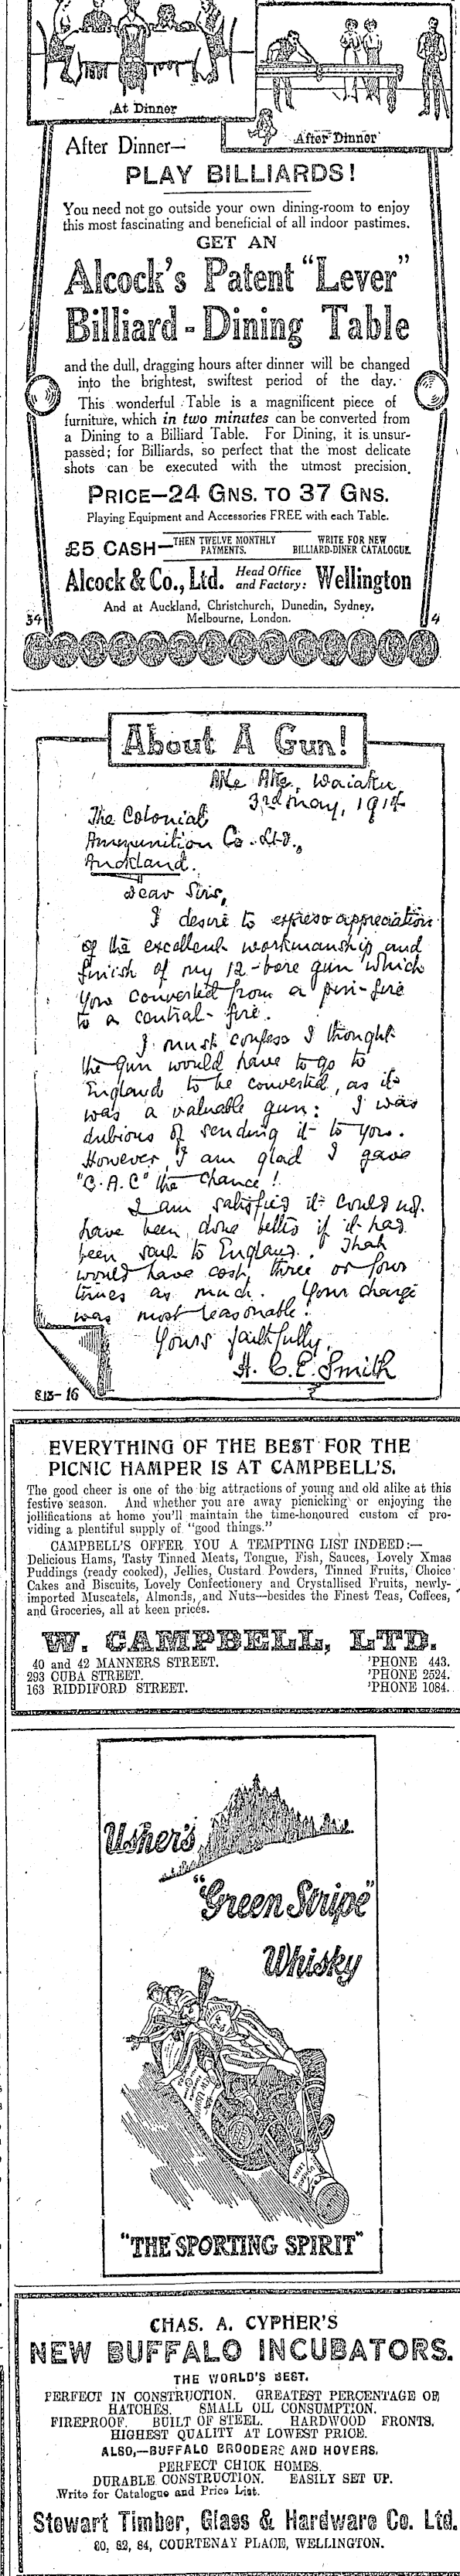 At Dinner
After Dinner
After Dinner—
PLAY BILLIARDS!
You need not go outside your own dining-room to enjoy
this most fascinating and beneficial of all indoor pastimes.
GET AN
Alcock's Patent "Lever"
Billiard-Dining Table
and the dull, dragging hours after dinner will be changed
into the brightest, swiftest period of the day.
This wonderful Table is a magnificent piece of
furniture, which in two minutes can be converted from
a Dining to a Billiard Table. For Dining, it is unsur-
passed; for Billiards, so perfect that the most delicate
shots can be executed with the utmost precision.
PRICE—24 GNS. TO 37 GNS.
Playing Equipment and Accessories FREE with each Table.
£5 CASH—THEN TWELVE MONTHLY PAYMENTS. WRITE FOR NEW BILLIARD-DINER CATALOGUE
Alcock & Co., Ltd. Head Office and Factory: Wellington
And at Auckland, Christchurch, Dunedin, Sydney,
Melbourne, London.
34 4
About A Gun!
Ake Ake, Waiaku
3rd May, 1914
The Colonial
Ammunition Co. Ltd.,
Auckland.
Dear Sirs,
I desire to express appreciation
of the excellent workmanship and
finish of my 12-bore gun which
you converted from a pin-fire
to a central-fire.
I must confess I thought
the gun would have to go to
England to be converted, as it
was a valuable gun: I was
dubious of sending it to you.
However, I am glad I gave
"C.A.C" the chance!
I am satisfied it could not
have been done better if it had
been sent to England. That
would have cost three or four
times as much. Your charge
was most reasonable.
Yours faithfully,
H. C. E. Smith
E13-16
EVERYTHING OF THE BEST FOR THE
PICNIC HAMPER IS AT CAMPBELL'S.
The good cheer is one of the big attractions of young and old alike at this
festive season. And whether you are away picnicking or enjoying the
jollifications at home you'll maintain the time-honoured custom of pro-
viding a plentiful supply of "good things."
CAMPBELL'S OFFER YOU A TEMPTING LIST INDEED:—
Delicious Hams, Tasty Tinned Meats, Tongue, Fish, Sauces, Lovely Xmas
Puddings (ready cooked), Jellies, Custard Powders, Tinned Fruits, Choice
Cakes and Biscuits, Lovely Confectionery and Crystallised Fruits, newly-
imported Muscatels, Almonds, and Nuts—besides the Finest Teas, Coffees,
and Groceries, all at keen prices.
W. CAMPBELL, LTD.
40 and 42 MANNERS STREET. 'PHONE 443.
293 CUBA STREET. 'PHONE 2524.
163 RIDDIFORD STREET. 'PHONE 1084.
Usher's
"Green Stripe"
Whisky
"THE SPORTING SPIRIT"
CHAS. A. CYPHER'S
NEW BUFFALO INCUBATORS.
THE WORLD'S BEST.
PERFECT IN CONSTRUCTION. GREATEST PERCENTAGE OF
HATCHES. SMALL OIL CONSUMPTION.
FIREPROOF. BUILT OF STEEL. HARDWOOD FRONTS.
HIGHEST QUALITY AT LOWEST PRICE.
ALSO,—BUFFALO BROODERS AND HOVERS.
PERFECT CHICK HOMES.
DURABLE CONSTRUCTION. EASILY SET UP.
Write for Catalogue and Price List.
Stewart Timber, Glass & Hardware Co. Ltd.
80, 82, 84, COURTENAY PLACE, WELLINGTON.